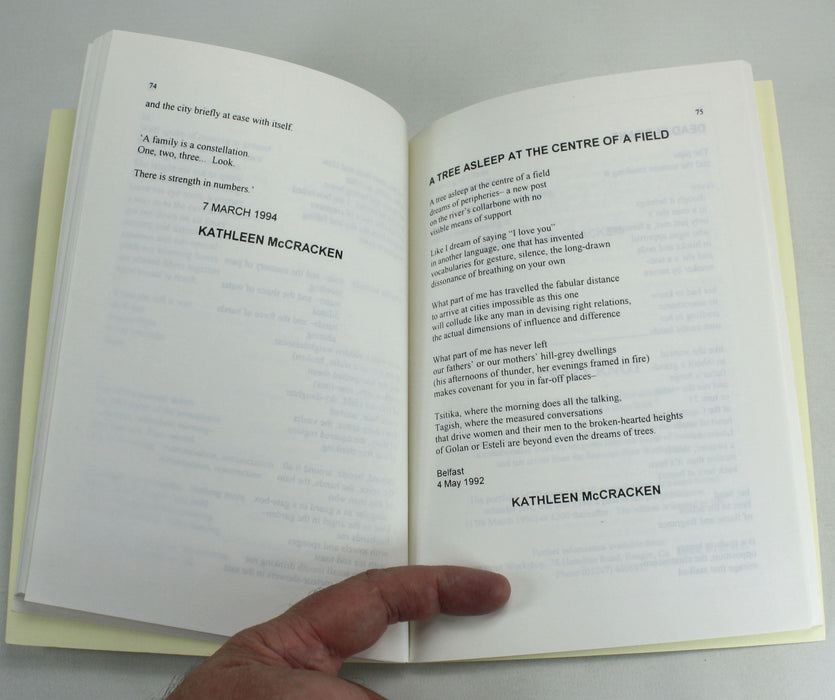 74
and the city briefly at ease with itself.
'A family is a constellation.
One, two, three... Look.
There is strength in numbers.'
7 MARCH 1994
KATHLEEN McCRACKEN
75
A TREE ASLEEP AT THE CENTRE OF A FIELD
A tree asleep at the centre of a field
dreams of peripheries– a new post
on the river's collarbone with no
visible means of support
Like I dream of saying "I love you"
in another language, one that has invented
vocabularies for gesture, silence, the long-drawn
dissonance of breathing on your own
What part of me has travelled the fabular distance
to arrive at cities impossible as this one
will collude like any man in devising right relations,
the actual dimensions of influence and difference
What part of me has never left
our fathers' or our mothers' hill-grey dwellings
(his afternoons of thunder, her evenings framed in fire)
makes covenant for you in far-off places–
Tsitika, where the morning does all the talking,
Tagish, where the measured conversations
that drive women and their men to the broken-hearted heights
of Golan or Esteli are beyond even the dreams of trees.
Belfast
4 May 1992
KATHLEEN McCRACKEN